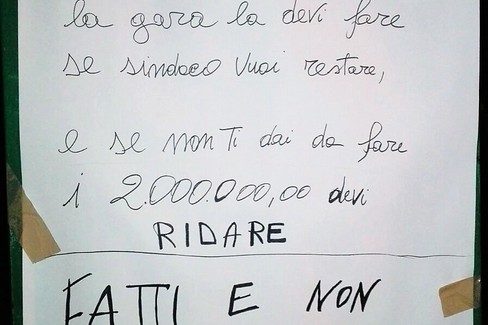 la gara la devi fare
se sindaco vuoi restare,
e se non Ti dai da fare
i 2.000.000,00 devi
RIDARE
FATTI E NON